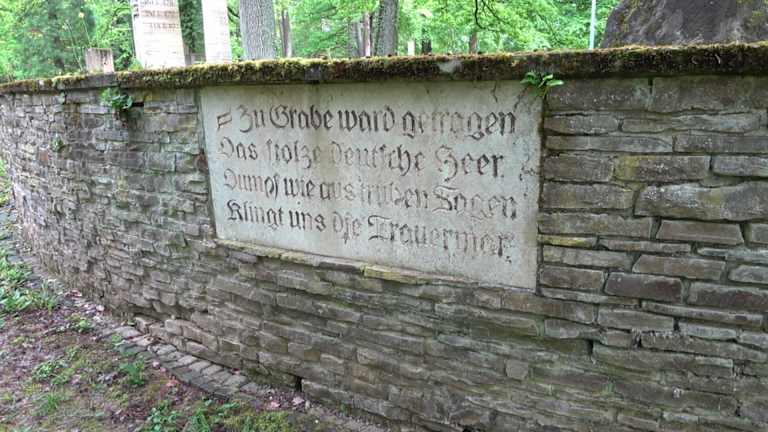 Zu Grabe ward getragen
Das stolze deutsche Heer.
Dumpf wie aus trüben Sagen
Klingt uns die Trauermär.